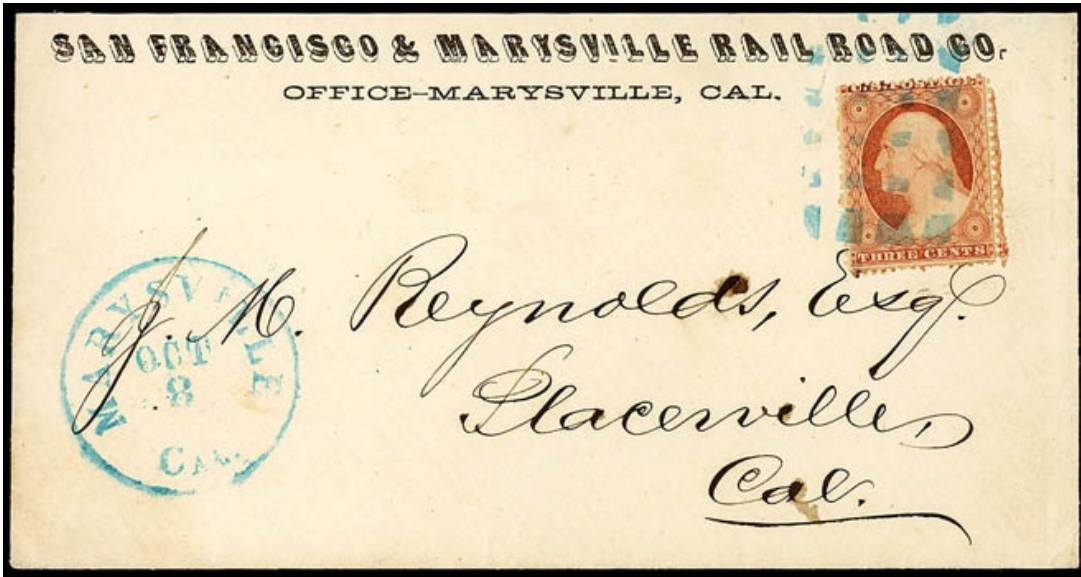 SAN FRANCISCO & MARYSVILLE RAIL ROAD CO.
OFFICE–MARYSVILLE, CAL.
THREE CENTS
MARYSVILLE
OCT
8
CAL.
J. M. Reynolds, Esq.
Placerville,
Cal.